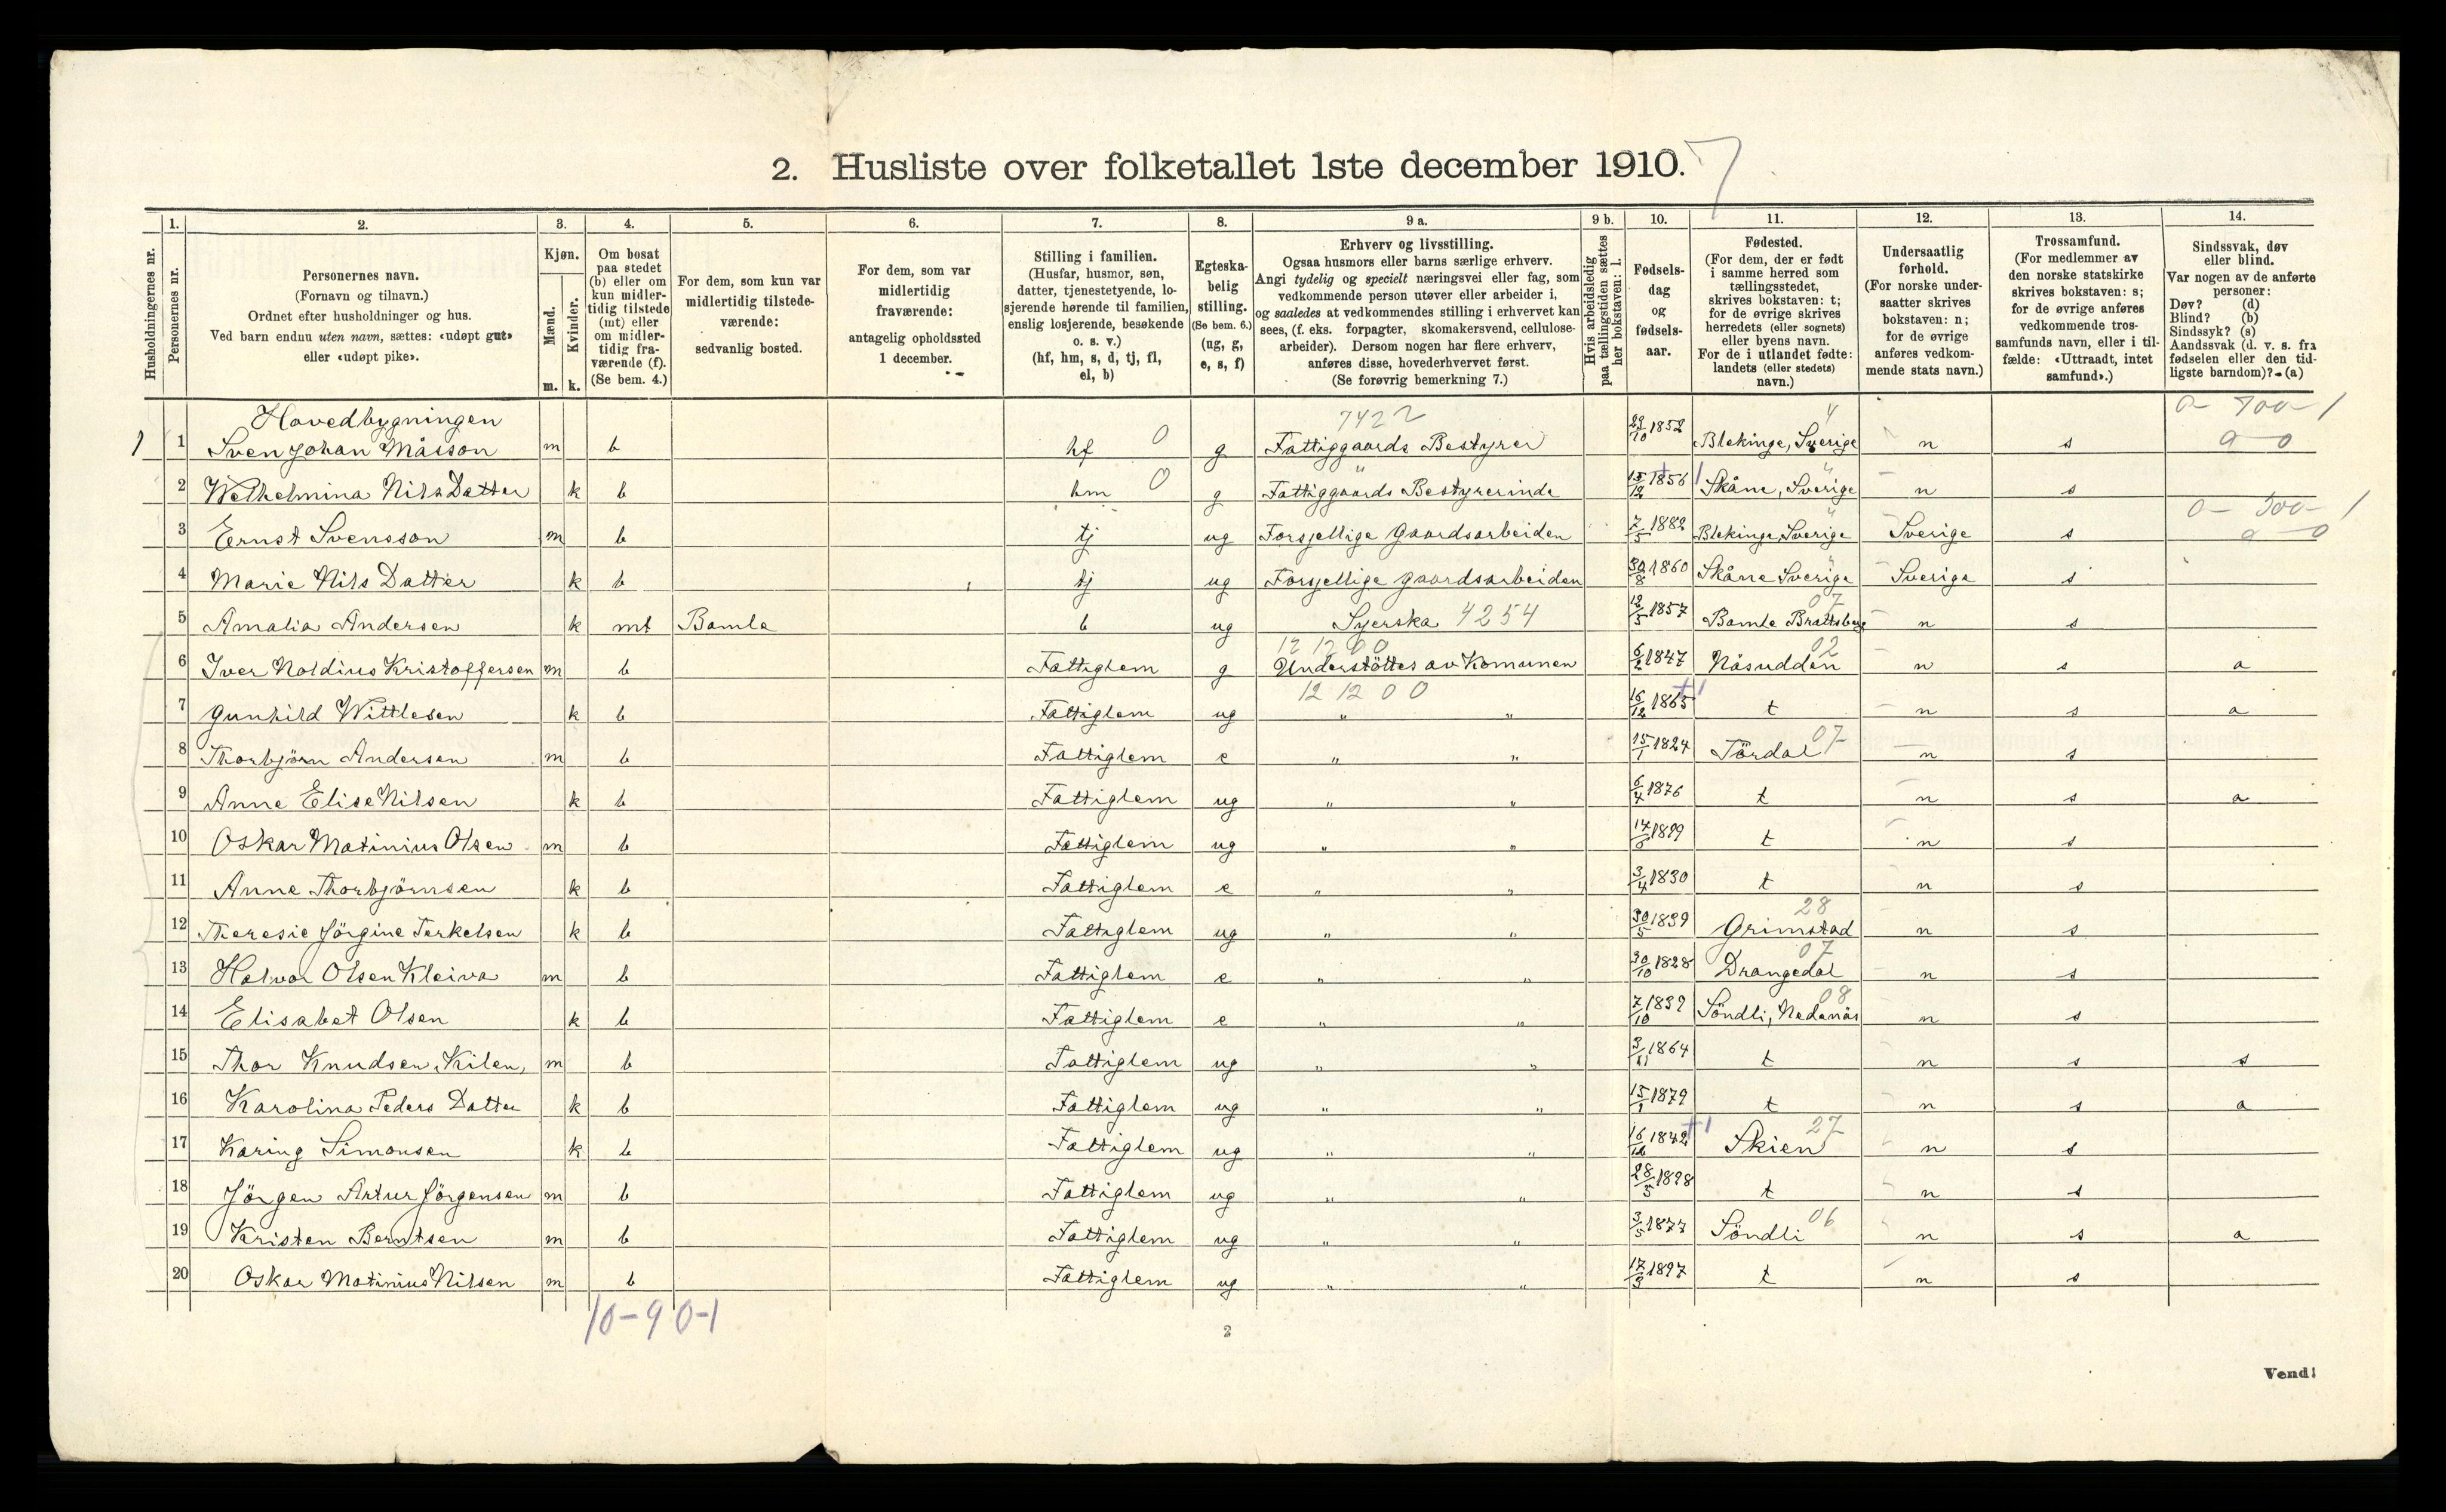 2. Husliste over folketallet 1ste december 1910. 7
Husholdningernes nr.
1. Personernes nr.
2. Personernes navn.
(Fornavn og tilnavn.)
Ordnet efter husholdninger og hus.
Ved barn endnu uten navn, sættes: «udøpt gut»
eller «udøpt pike».
3. Kjøn.
Mænd. m.
Kvinder. k.
4. Om bosat
paa stedet
(b) eller om
kun midler-
tidig tilstede
(mt) eller
om midler-
tidig fra-
værende (f).
(Se bem. 4.)
5. For dem, som kun var
midlertidig tilstede-
værende:
sedvanlig bosted.
6. For dem, som var
midlertidig
fraværende:
antagelig opholdssted
1 december.
7. Stilling i familien.
(Husfar, husmor, søn,
datter, tjenestetyende, lo-
sjerende hørende til familien,
enslig losjerende, besøkende
o. s. v.)
(hf, hm, s, d, tj, fl,
el, b)
8. Egteska-
belig
stilling.
(Se bem. 6.)
(ug, g,
e, s, f)
9 a. Erhverv og livsstilling.
Ogsaa husmors eller barns særlige erhverv.
Angi tydelig og specielt næringsvei eller fag, som
vedkommende person utøver eller arbeider i,
og saaledes at vedkommendes stilling i erhvervet kan
sees, (f. eks. forpagter, skomakersvend, cellulose-
arbeider). Dersom nogen har flere erhverv,
anføres disse, hovederhvervet først.
(Se forøvrig bemerkning 7.)
9 b. Hvis arbeidsledig
paa tællingstiden sættes
her bokstaven: l.
10. Fødsels-
dag
og
fødsels-
aar.
11. Fødested.
(For dem, der er født
i samme herred som
tællingsstedet,
skrives bokstaven: t;
for de øvrige skrives
herredets (eller sognets)
eller byens navn.
For de i utlandet fødte:
landets (eller stedets)
navn.)
12. Undersaatlig
forhold.
(For norske under-
saatter skrives
bokstaven: n;
for de øvrige
anføres vedkom-
mende stats navn.)
13. Trossamfund.
(For medlemmer av
den norske statskirke
skrives bokstaven: s;
for de øvrige anføres
vedkommende tros-
samfunds navn, eller i til-
fælde: «Uttraadt, intet
samfund».)
14. Sindssvak, døv
eller blind.
Var nogen av de anførte
personer:
Døv? (d)
Blind? (b)
Sindssyk? (s)
Aandssvak (d. v. s. fra
fødselen eller den tid-
ligste barndom)? (a)
Hovedbygningen 7422 4
1 1 Sven Johan Måsson m b hf 0 g Fattiggaards Bestyrer 23/10 1852 Blekinge, Sverige n s
2 Welhelmina Nils Datter k b hm 0 g Fattiggaards Bestyrerinde 15/12 1856 Skåne, Sverige n s
3 Ernst Svensson m b tj ug Forsjellige gaardsarbeiden 7/5 1882 Blekinge, Sverige Sverige s
4 Marie Nils Datter k b tj ug Forsjellige gaardsarbeiden 30/8 1860 Skåne Sverige Sverige s
5 Amalia Andersen k mt Bamla b ug Syerska 4254 12/5 1857 Bamle Brattsberg 07 n s
12 12 00
6 Iver Noldius Kristoffersen m b Fattiglem g Understöttes av Komunen 6/2 1847 Näsudden 02 n s a
12 12 0 0
7 Gunhild Wittlesen k b Fattiglem ug " " 16/12 1865 t n s a
8 Thorbjörn Andersen m b Fattiglem e " " 15/1 1824 Tördal 07 n s
9 Anne Elise Nilsen k b Fattiglem ug " " 6/4 1876 t n s a
10 Oskar Matinius Olsen m b Fattiglem ug " " 1899 t n s
11 Anne Thorbjörnsen k b Fattiglem e " " 3/4 1830 t n s
12 Theresie Jörgine Terkelsen k b Fattiglem ug " " 30/5 1839 Grimstad 28 n s
13 Halvor Olsen Kleiva m b Fattiglem e " " 30/10 1828 Drangedal 07 n s
14 Elisabet Olsen k b Fattiglem e " " 7/10 1839 Söndli, Nedenäs 08 n s
15 Thor Knudsen, Kilen, m b Fattiglem ug " " 3/11 1864 t n s s
16 Karolina Peders Datter k b Fattiglem ug " " 15/1 1879 t n s a
17 Karing Simonsen k b Fattiglem ug " " 16/12 1842 Skien 27 n s
18 Jörgen Artur Jörgensen m b Fattiglem ug " " 28/5 1898 t n s
19 Kristen Berntsen m b Fattiglem ug " " 3/5 1877 Söndli 06 n s a
20 Oskar Matinius Nilsen m b Fattiglem ug " " 17/3 1897 t n s
10-9 0-1
2
Vend!